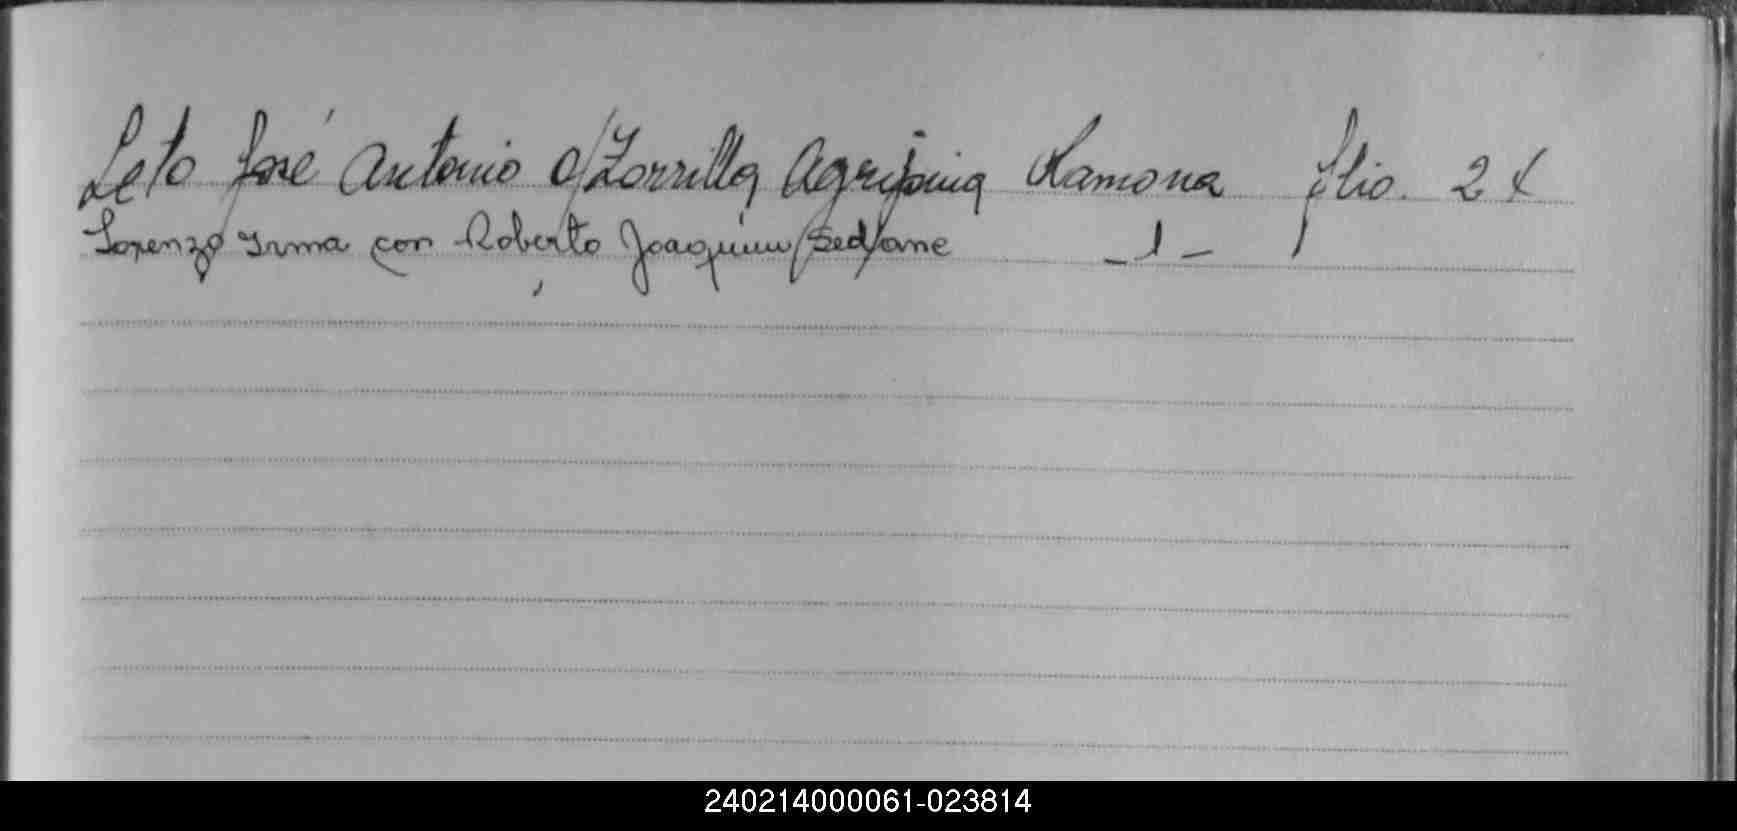 Leto José Antonio c/Zorrilla Agripina Ramona flio. 24
Lorenzo Irma con Roberto Joaquin Sedane _1_
240214000061-023814